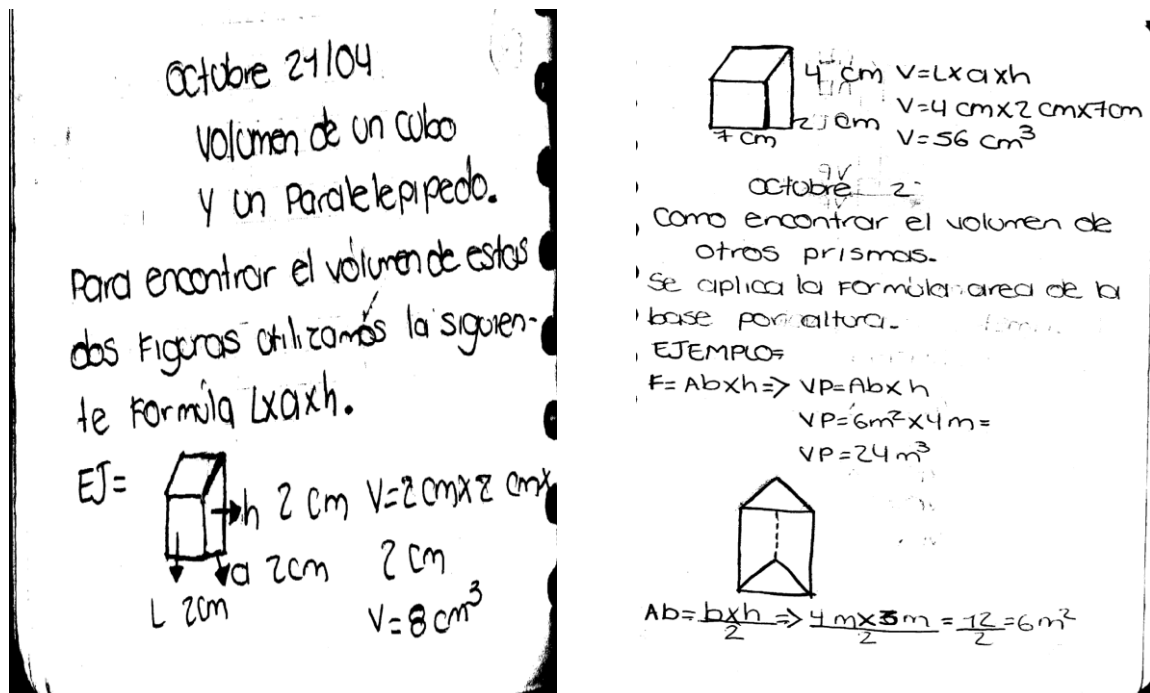 Octubre 21/04
Volumen de un cubo
y un Paralelepipedo.
Para encontrar el volumen de estas
dos Figuras utilizamos la siguien-
te Formula Lxaxh.
EJ=
h 2 cm V=2cmx2 cmx
a 2cm 2 cm
L 2cm V=8cm³
4 cm V=Lxaxh
2 cm V=4 cmx2 cmx7cm
7 cm V=56 cm³
octubre 2
Como encontrar el volumen de
otros prismas.
Se aplica la Formula area de la
base por altura.
EJEMPLO=
F= Abxh=> VP=Abx h
VP=6m²x4m=
VP=24m³
Ab= bxh/2 => 4 mx3m/2 = 12/2 =6m²